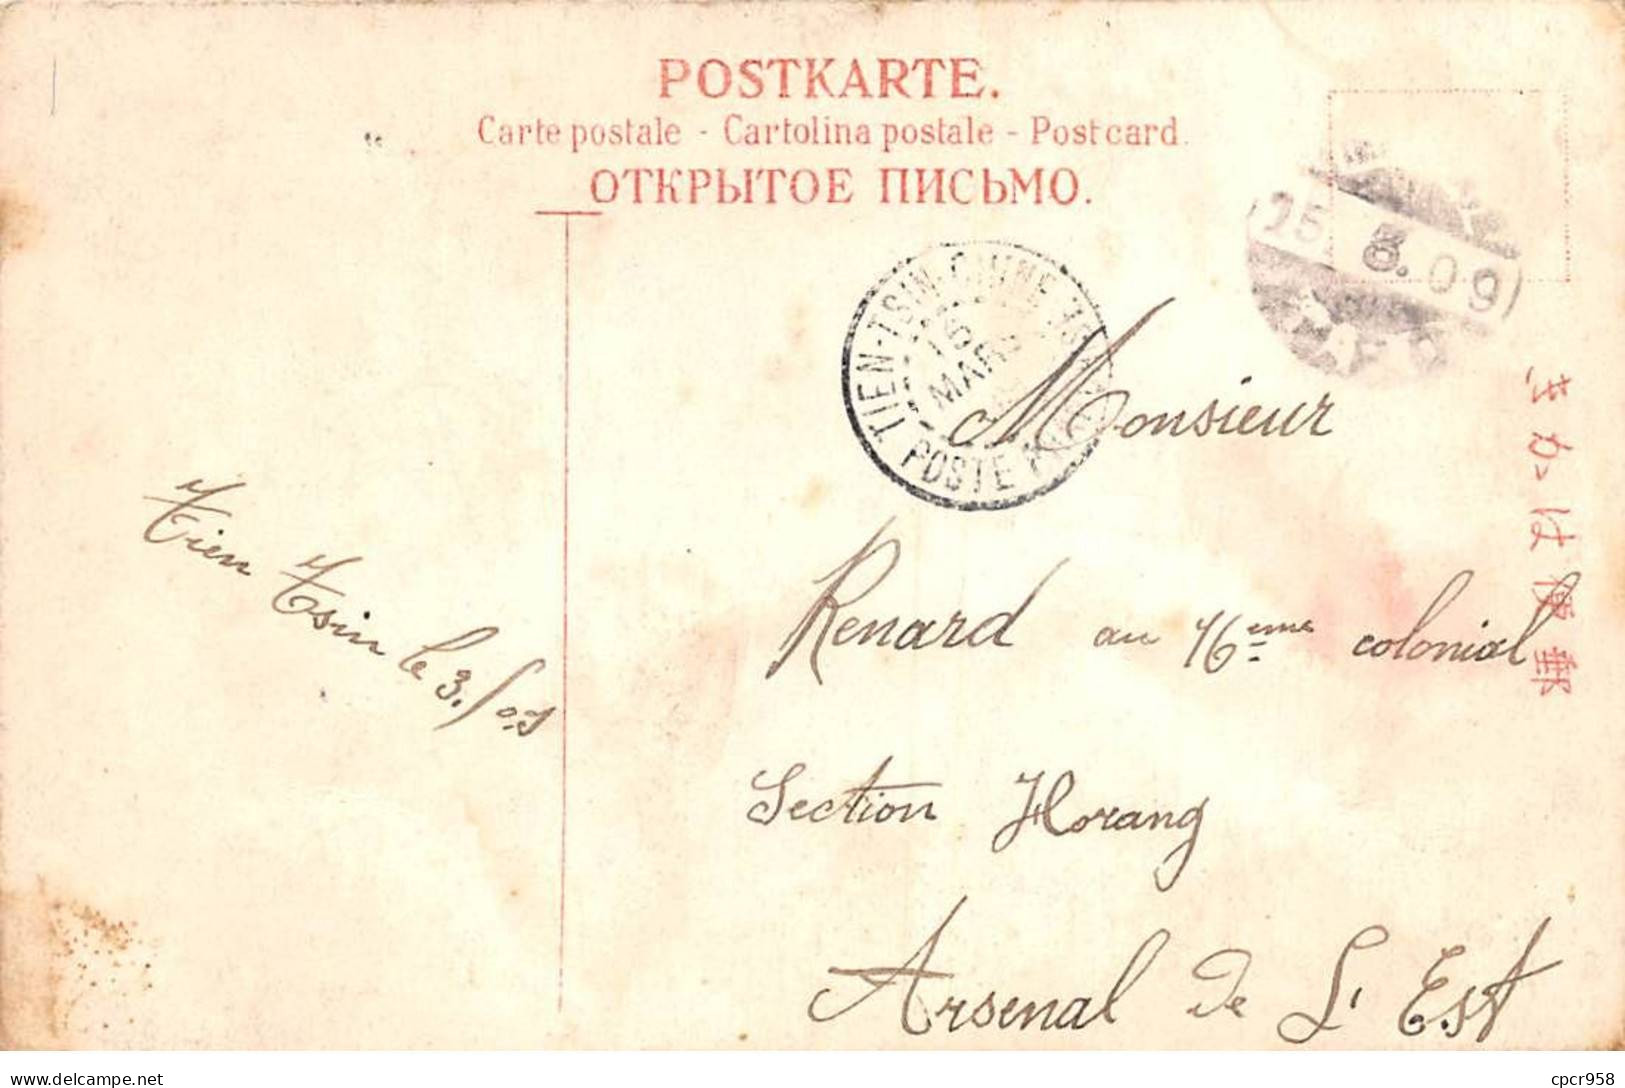 POSTKARTE.
Carte postale - Cartolina postale - Postcard.
ОТКРЫТОЕ ПИСЬМО.
15. 3. 09
TIEN-TSIN-CHINE
MARS
POSTE
郵便はがき
Monsieur
Renard au 16eme colonial
Section Horang
Arsenal De L'Est
Tien Tsin le 3./09
cpcr958